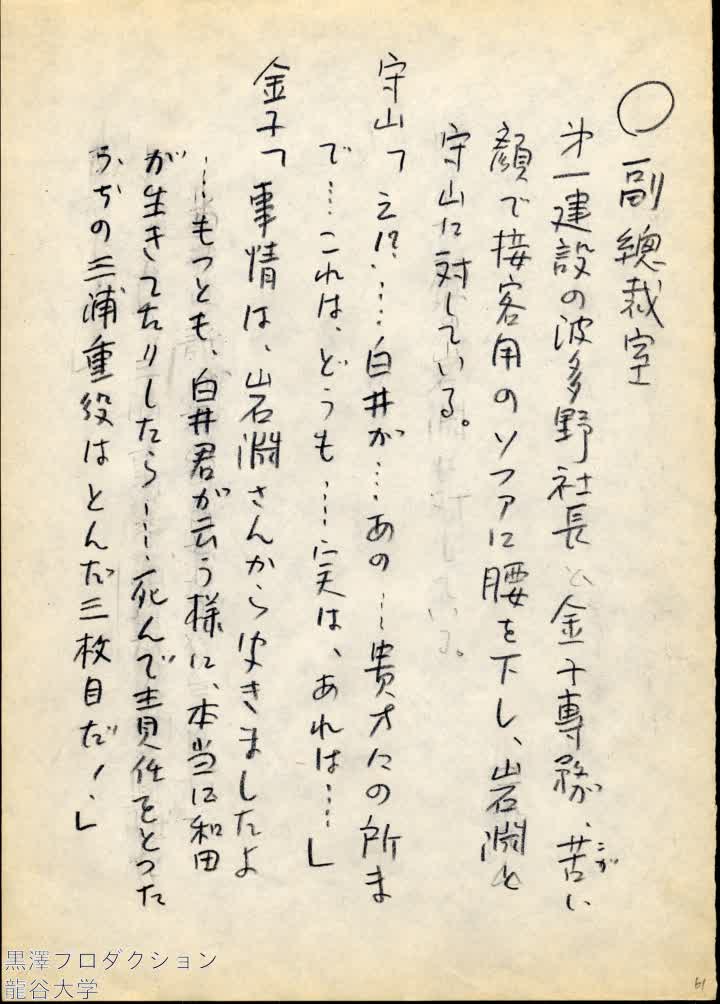 ○副總裁室
第一建設の波多野社長と金子専務、苦い
こが
顔で接客用のソファに腰を下し、岩淵と
守山に対している。
守山「え!?……白井が…あの…貴方たの所ま
で……これは、どうも……実は、あれは……」
金子「事情は、岩淵さんから聞きましたよ
……もつとも、白井君が云う様に、本当に和田
が生きてたりしたら……死んで責任をとつた
うちの三浦重役はとんだ三枚目だ!」
黒澤プロダクション
龍谷大学
61